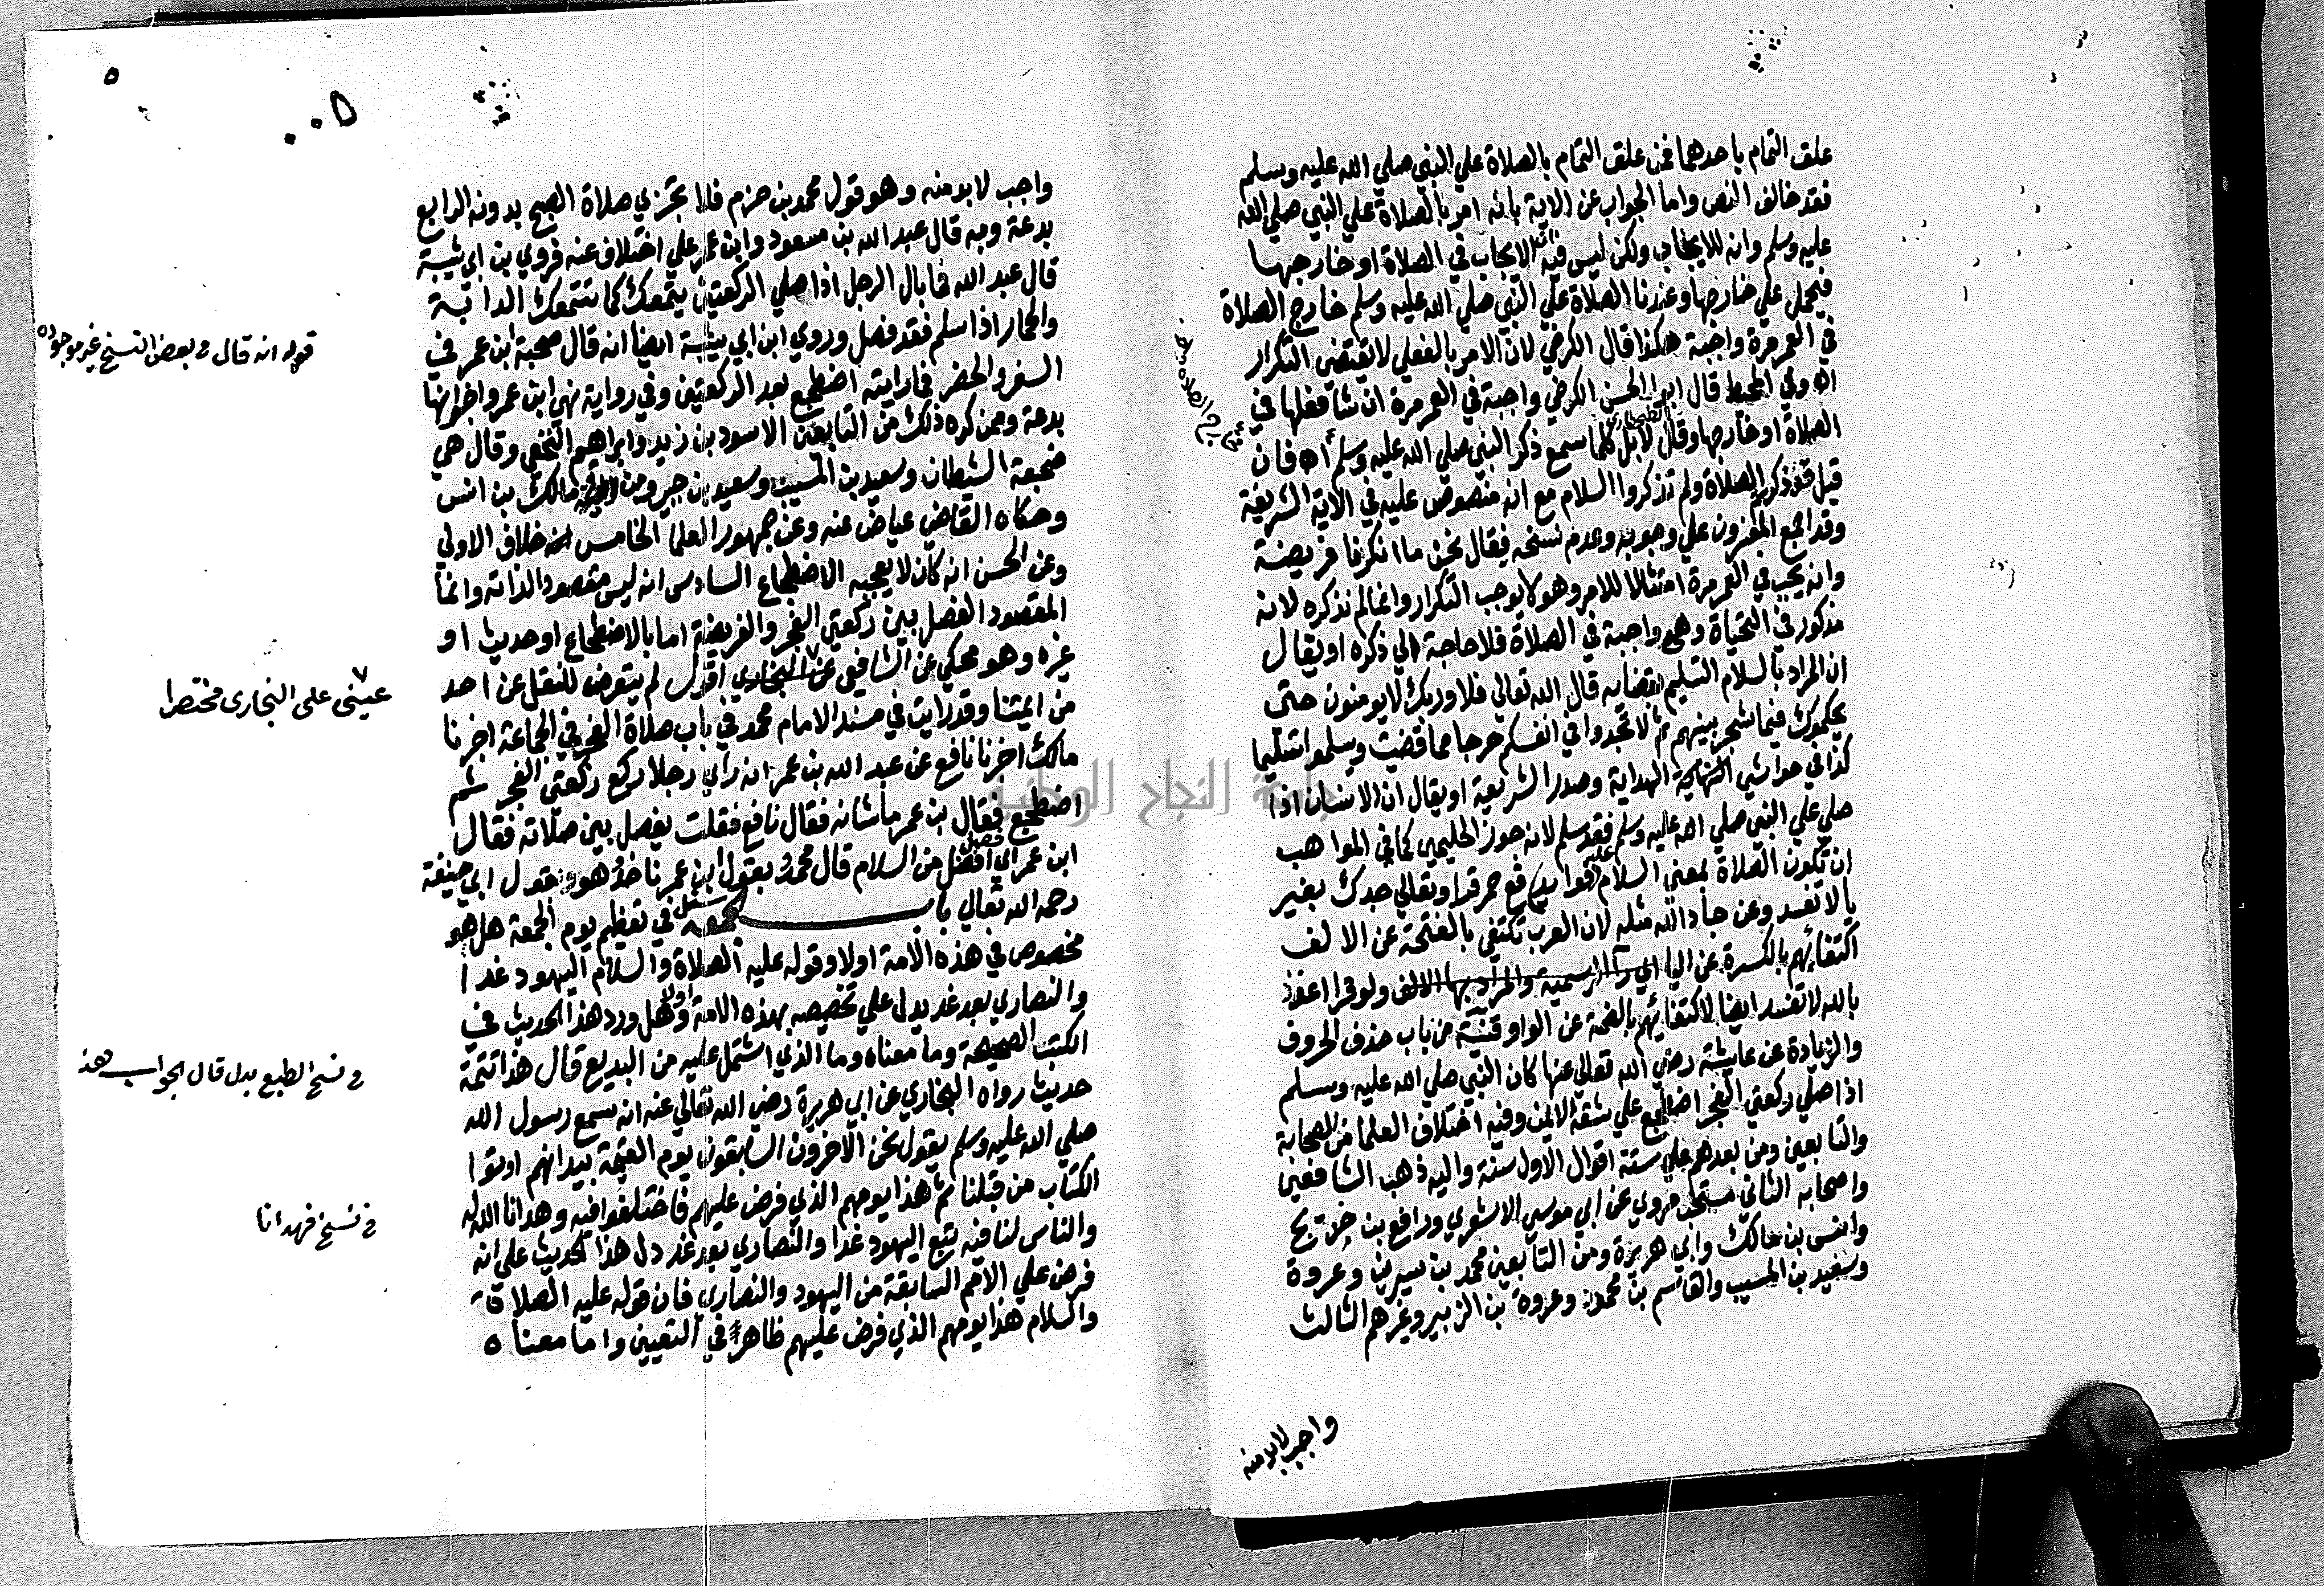 علق التمام باحدهما فمن علق التمام بالصلاة علي النبي صلي الله عليه وسلم
فقد خالف النص واما الجواب عن الاية بانه امر بالصلاة علي النبي صلي الله
عليه وسلم وانه للايجاب ولكن ليس فيه الايجاب في الصلاة او خارجها
فيحمل علي خارجها وعندنا الصلاة علي النبي صلي الله عليه وسلم خارج الصلاة
في العمر مرة واجبة هكذا قال الكرخي لان الامر بالفعل لا يقتضي التكرار
اه وفي المحيط قال ابو الحسن الكرخي واجبة في العمر مرة ان شا فعلها في
الصلاة او خارجها وقال الطحاوي لا بل كلما سمع ذكر النبي صلي الله عليه وسلم اه فان
قيل قد ذكرتم الصلاة ولم تذكروا السلام مع انه منصوص عليه في الاية الشريفة
وقد اجمع المفسرون علي وجوبه وعدم نسخه فيقال نحن ما انكرنا فريضة
وانه يجب في العمر مرة امتثالا للامر وهو لا يوجب التكرار وانما لم نذكره لانه
مذكور في التحياة وهي واجبة في الصلاة فلا حاجة الي ذكره او يقال
ان المراد بالسلام التسليم لقضايه قال الله تعالي فلا وربك لا يومنون حتى
يحكموك فيما شجر بينهم ثم لا تجدوا في انفسكم حرجا مما قضيت ويسلموا تسليما
كذا في حواشي الهداية وصدر الشريعة او يقال ان الانسان اذا
صلي علي النبي صلي الله عليه وسلم فقد سلم لانه جوز الحليمي كما في المواهب
ان تكون الصلاة بمعني السلام عليه وتعالي جدك بغير
يا لا تفسد وعن جاد الله مثله لان العرب تكتفي بالفتحة عن الالف
اكتفائهم بالكسرة عن اليا ولو قرا اعوذ
بالله لا تفسد ايضا لاكتفائهم بالضمة عن الواو قنية من باب حذف الحروف
والزيادة عن عايشة رضي الله تعالي عنها كان النبي صلي الله عليه وسلم
اذا صلي ركعتي الفجر اضطجع علي شقه الايمن وفيه اختلاف العلما من الصحابة
والتابعين ومن بعدهم علي ستة اقوال الاول سنة واليه ذهب الشافعي
واصحابه الثاني مستحب مروي عن ابي موسي الاشعري ورافع بن خديج
وانس بن مالك وابي هريرة ومن التابعين محمد بن سيرين وعروة
وسعيد بن المسيب والقاسم بن محمد وعروة بن الزبير وغيرهم الثالث
واجب لابد منه
خارج الصلاة
٥
٥
واجب لابد منه وهو قول محمد بن حزم فلا تجزي صلاة الصبح بدونه الرابع
بدعة وبه قال عبد الله بن مسعود وابن عمر علي اختلاف عنه فروي بن ابي شيبة
قال عبد الله ما بال الرجل اذا صلي الركعتين يتمعك كما تتمعك الدابة
والحمار اذا سلم فقد فصل وروي ابن ابي شيبة ايضا انه قال صحبة ابن عمر في
السفر والحضر فما رايته اضطجع بعد الركعتين وفي رواية نهي ابن عمر واخبر انها
بدعة وممن كره ذلك من التابعين الاسود بن زيد وابراهيم النخعي وقال هي
ضجعة الشيطان وسعيد بن المسيب وسعيد بن جبير ومن مالك بن انس
وحكاه القاضي عياض عنه وعن جمهور العلما الخامس انه خلاف الاولي
وعن الحسن انه كان لا يعجبه الاضطجاع السادس انه ليس مقصودا لذاته وانما
المقصود الفصل بين ركعتي الفجر والفريضة اما بالاضطجاع او حديث او
غيره وهو محكي عن الشافعي عن البخاري اقول لم يتعرض للنقل عن احد
من ايمتنا وقد رايت في مسند الامام محمد في باب صلاة الفجر في الجماعة اخبرنا
مالك اخبرنا نافع عن عبد الله بن عمر انه راي رجلا ركع ركعتي الفجر ثم
اضطجع فقال بن عمر ما شانه فقال نافع فقلت يفصل بين صلاته فقال
ابن عمر اي فصل افضل من السلام قال محمد بقول ابن عمر ناخذ وهو قول ابي حنيفة
رحمه الله تعالي باب الجمعة سئل في تعظيم يوم الجمعة هل هو
مخصوص في هذه الامة اولا وقوله عليه الصلاة والسلام اليهود غدا
والنصاري بعد غد يدل علي تخصيصه بهذه الامة اولا وهل ورد هذا الحديث في
الكتب الصحيحة وما معناه وما الذي اشتمل عليه من البديع قال هذا تتمة
حديث رواه البخاري عن ابي هريرة رضي الله تعالي عنه انه سمع رسول الله
صلي الله عليه وسلم يقول نحن الاخرون السابقون يوم القيمة بيد انهم اوتوا
الكتاب من قبلنا ثم هذا يومهم الذي فرض عليهم فاختلفوا فيه وهدانا الله له
والناس لنا فيه يتبع اليهود غدا والنصاري بعد غد دل هذا الحديث على انه
فرض علي الامم السابقة من اليهود والنصاري فان قوله عليه الصلاة
والسلام هذا يومهم الذي فرض عليهم ظاهر في التعيين واما معناه
قوله انه قال في بعض النسخ غير موجوده
عيني على البخاري مختصرا
في نسخ الطبع بدل قال الجواب هذ
في نسخ فهدانا
جامعة النجاح الوطنية